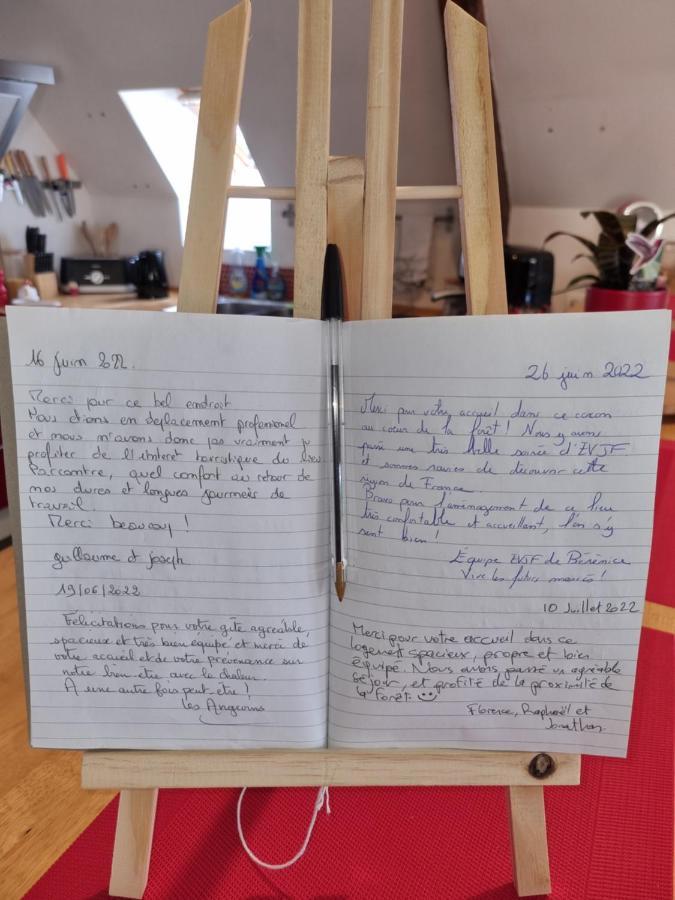 16 Juin 2022.
Merci pour ce bel endroit
Nous étions en déplacement professionnel
et nous n'avons donc pas vraiment pu
profiter de l'intérêt touristique du lieu
Par contre, quel confort au retour de
nos dures et longues journées de
travail.
Merci beaucoup !
Guillaume et Joseph
19/06/2022
Félicitations pour votre gîte agréable,
spacieux et très bien équipé et merci de
votre accueil et de votre prévenance sur
notre bien être avec la chaleur.
A une autre fois peut être !
Les Angevins
26 juin 2022
Merci pour votre accueil dans ce cocon
au cœur de la forêt ! Nous y avons
passé une très belle soirée d'EVJF
et sommes ravies de découvrir cette
région de France.
Bravo pour l'aménagement de ce lieu
très confortable et accueillant, l'on s'y
sent bien !
Équipe EVJF de Bérénice
Vive les futurs mariés !
10 Juillet 2022
Merci pour votre accueil dans ce
logement spacieux, propre et bien
équipé. Nous avons passé un agréable
séjour, et profité de la proximité de
la forêt. ☺
Florence, Raphaël et
Jonathan.